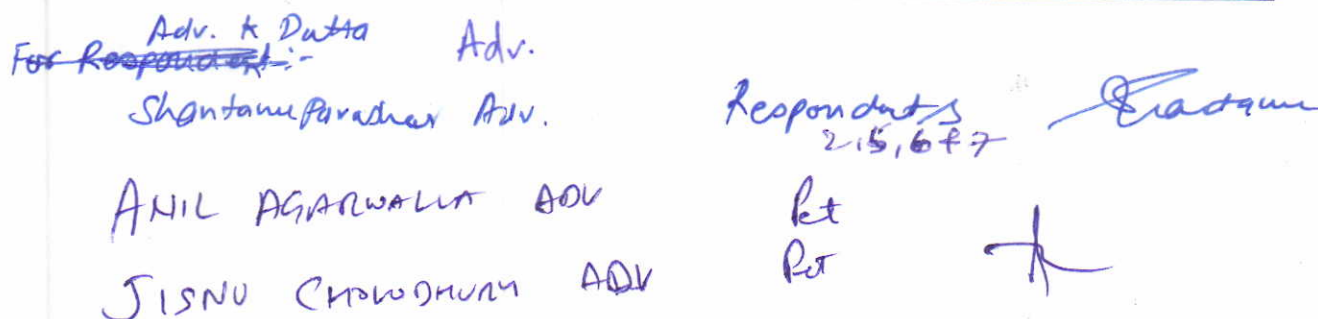 Adv. K Datta Adv.
For Respondent:-
Shantanu Parashar Adv. Respondents
2,5,6 & 7
ANIL AGARWALLA ADV Pet
JISNU CHOWDHURY ADV Pet